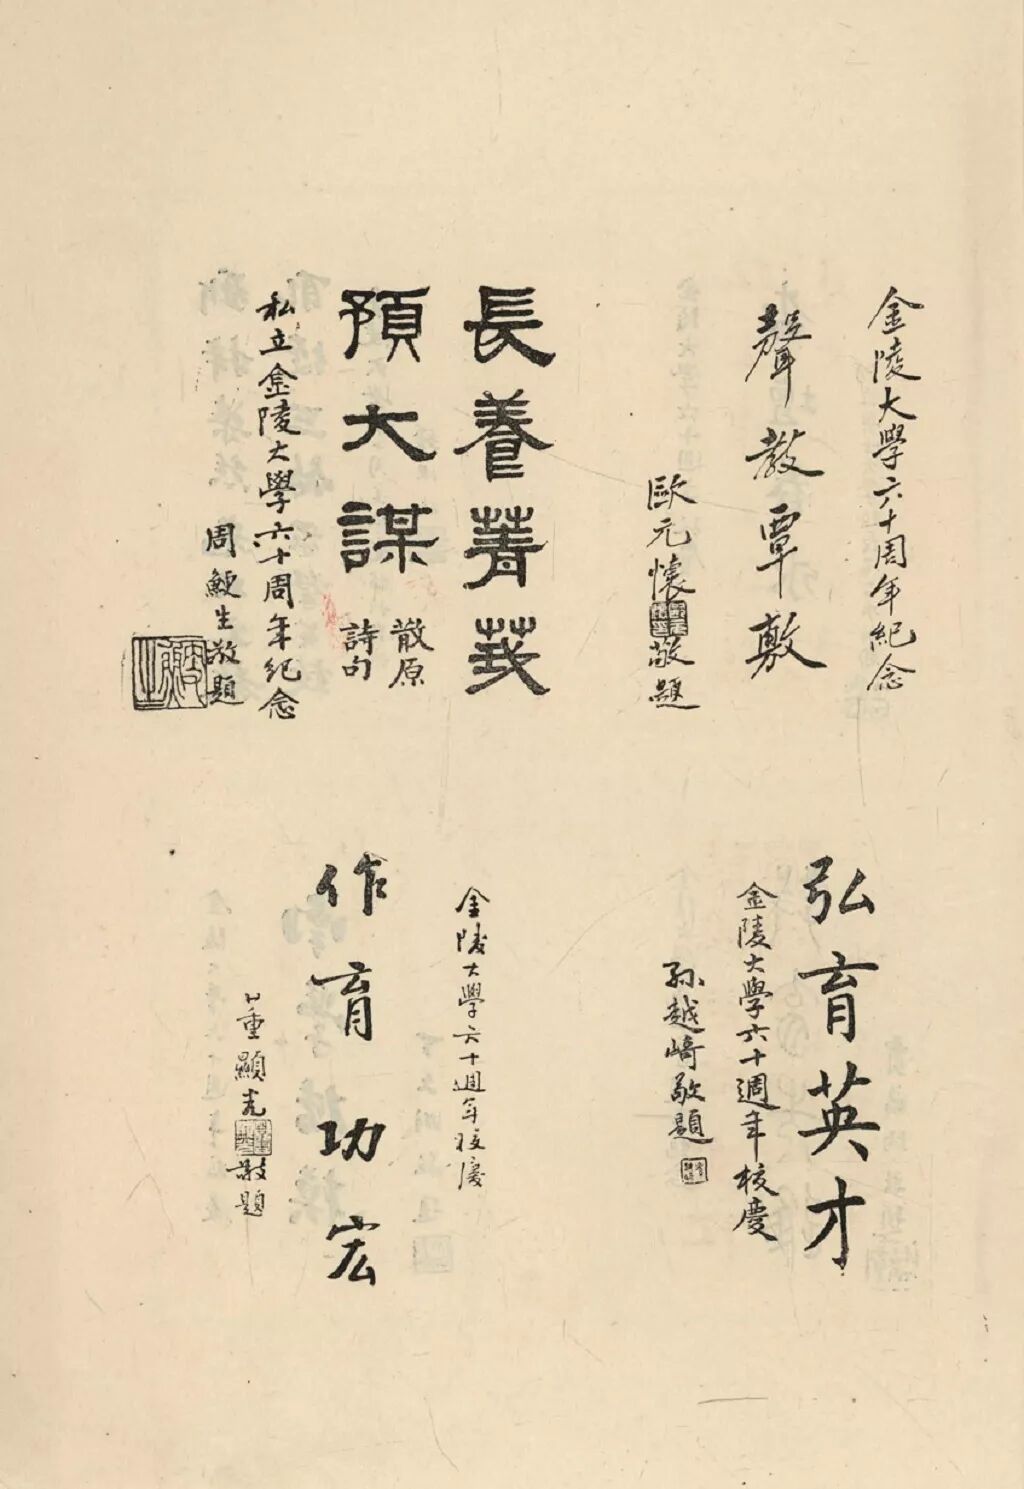 金陵大學六十周年紀念
聲教覃敷
歐元懷
敬題
長養菁莪
預大謀
散原
詩句
私立金陵大學六十周年紀念
周鯁生敬題
弘育英才
金陵大學六十週年校慶
孫越崎敬題
金陵大學六十週年校慶
作育功宏
董顯光
敬題